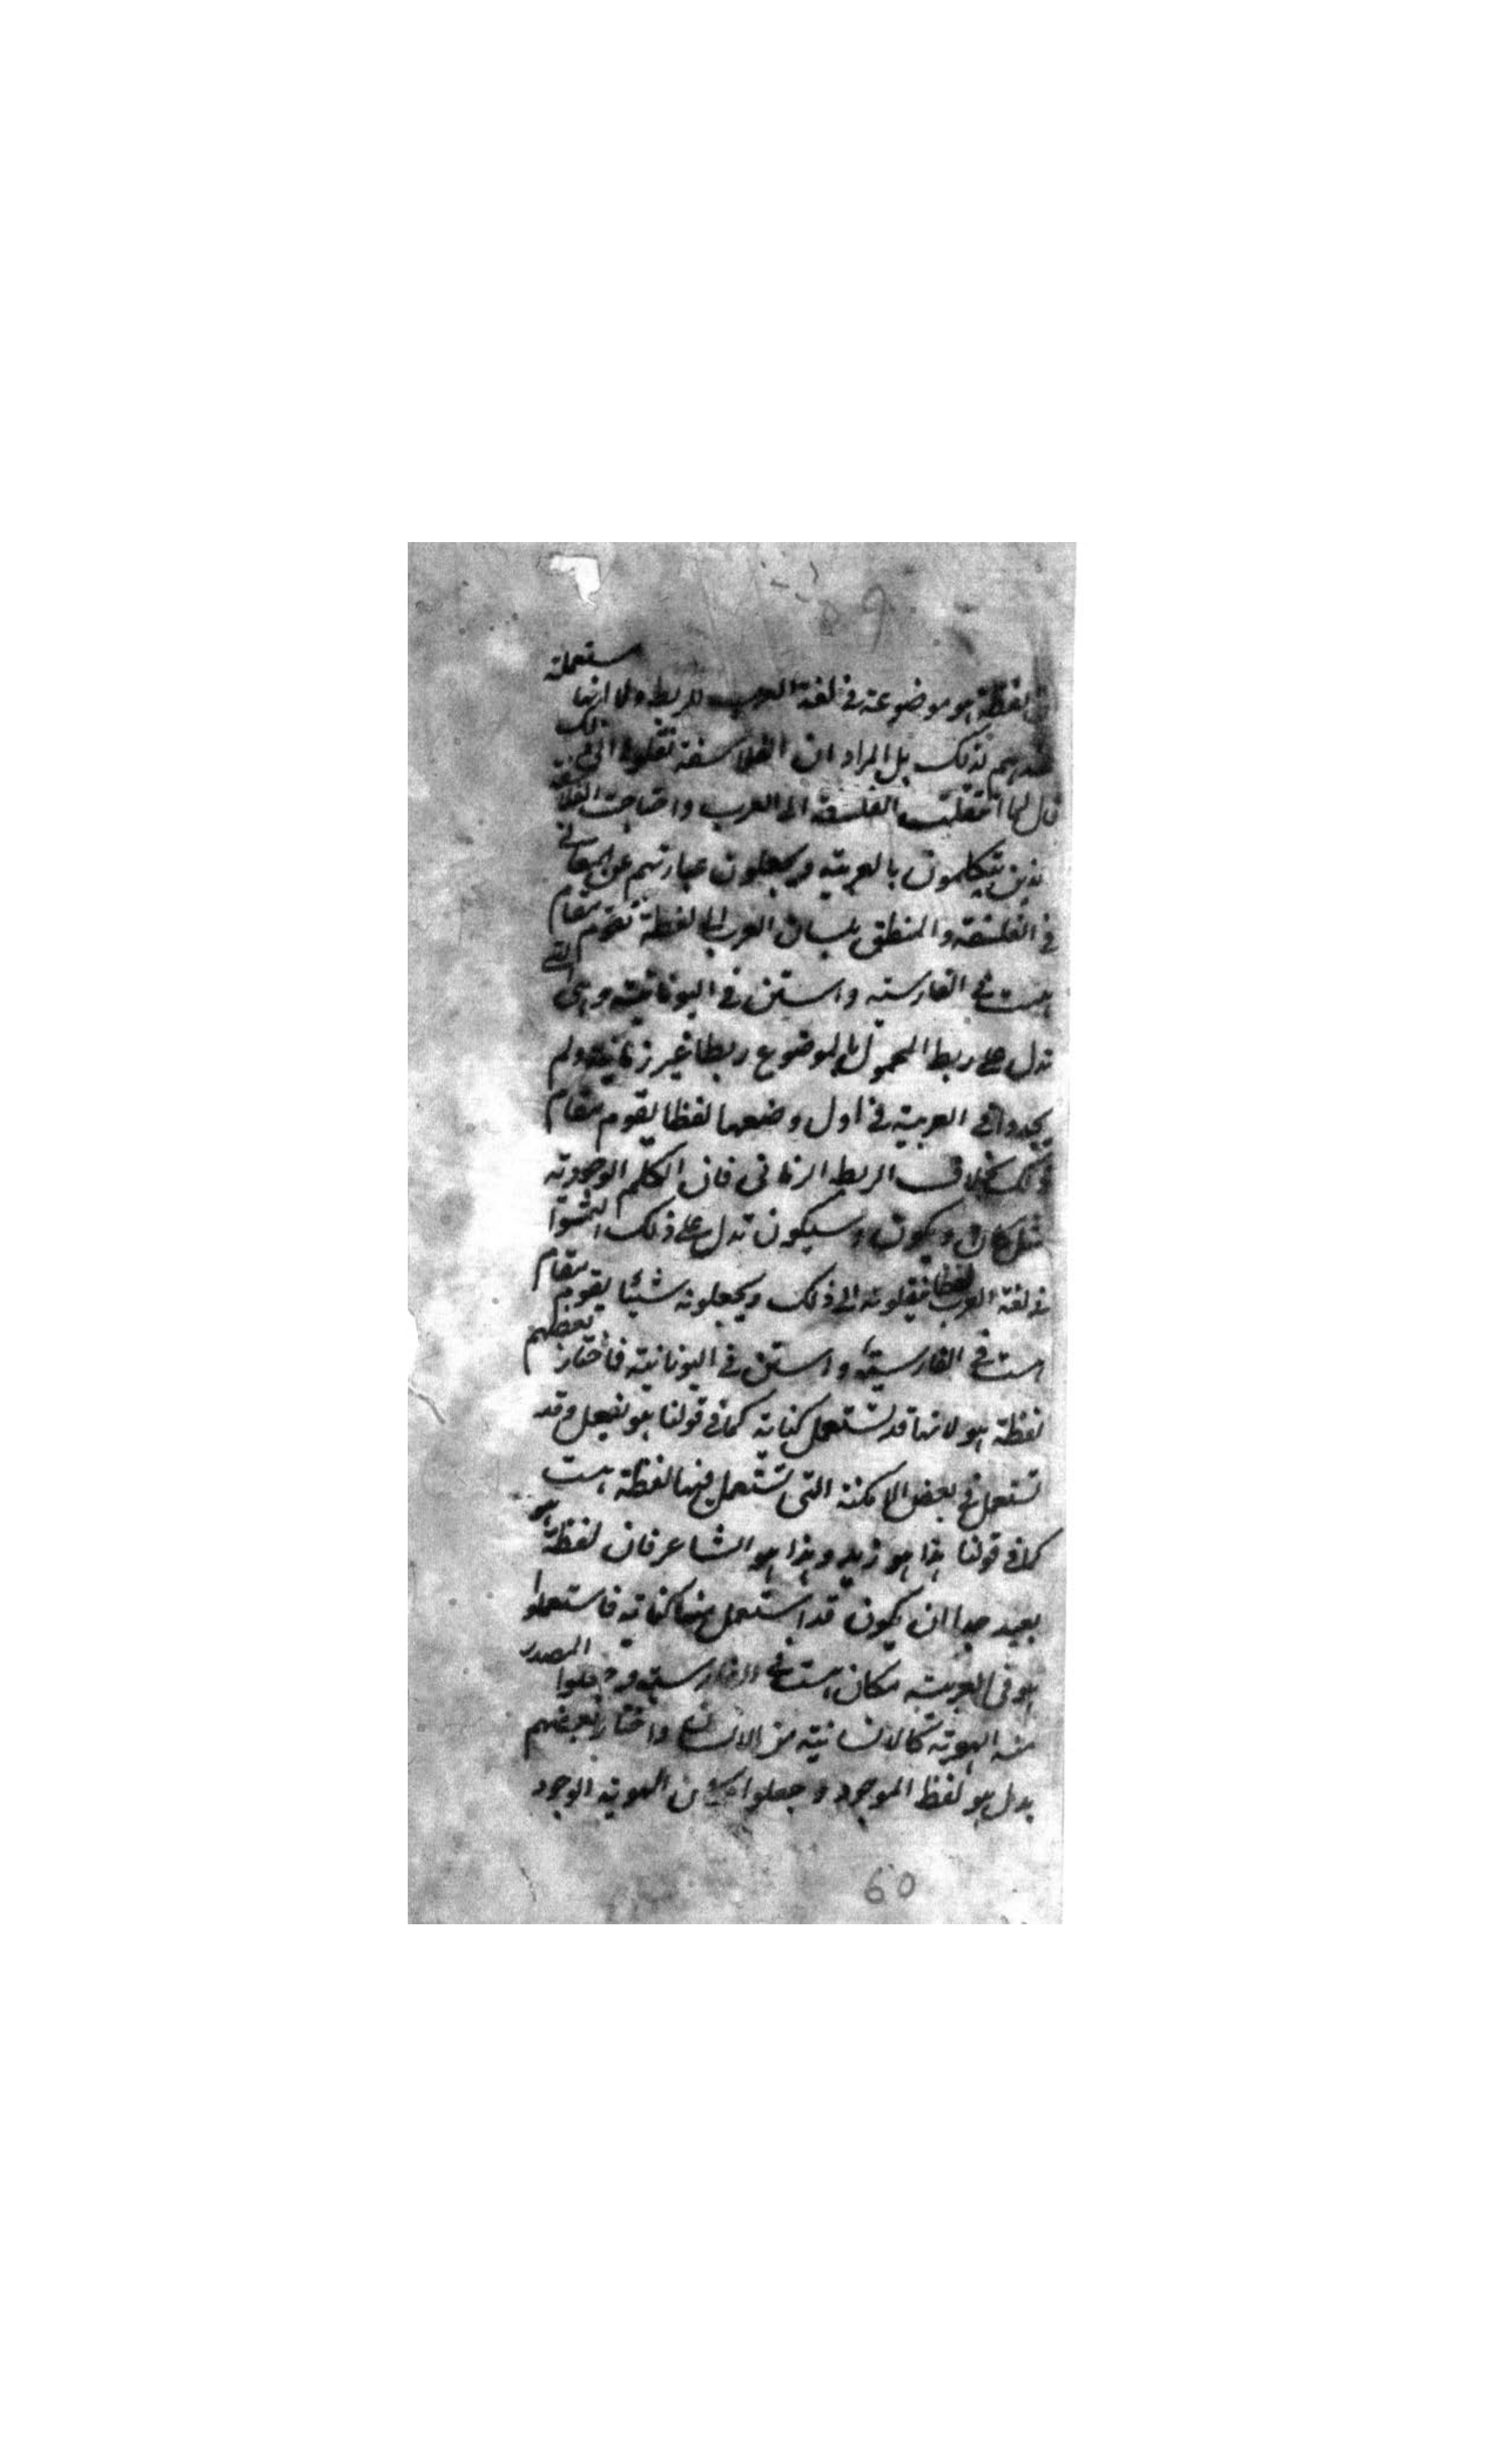 لفظة هو موضوعة في لغة العرب للربط ولا انها مستعملة
عندهم لذلك بل المراد ان الفلاسفة نقلوها الى ذلك
قال لما انتقلت الفلسفة الى العرب واحتاجت الفلاسفة
الذين يتكلمون بالعربية ويجعلون عبارتهم عن المعاني
في الفلسفة والمنطق بلسان العرب الى لفظة تقوم مقام
هست في الفارسية واستن في اليونانية وهي التي
تدل على ربط المحمول بالموضوع ربطا غير زمانية ولم
يجدوا في العربية في اول وضعها لفظا يقوم مقام
ذلك بخلاف الربط الزماني فان الكلم الوجودية
مثل كان ويكون وسيكون تدل على ذلك التمسوا
في لغة العرب لفظا ينقلونه الى ذلك ويجعلونه شيئا يقوم مقام
هست في الفارسية واستن في اليونانية فاختار بعضهم
لفظة هو لانها قد تستعمل كناية كما في قولنا هو يفعل وقد
تستعمل في بعض الامكنة التي تستعمل فيها لفظة هست
كما في قولنا هذا هو زيد وهذا هو الشاعر فان لفظة هو
بعيد جدا ان يكون قد استعمل ههنا كناية فاستعملوا
هو في العربية مكان هست في الفارسية وجعلوا المصدر
منه الهوية كالانسانية من الانسان واختار بعضهم
بدل هو لفظ الموجود وجعلوا مكان الهوية الوجود
60